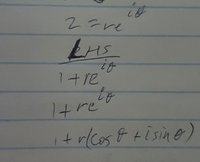 z = re^{iθ}
LHS
1+re^{iθ}
1+re^{iθ}
1+r(cosθ+isinθ)